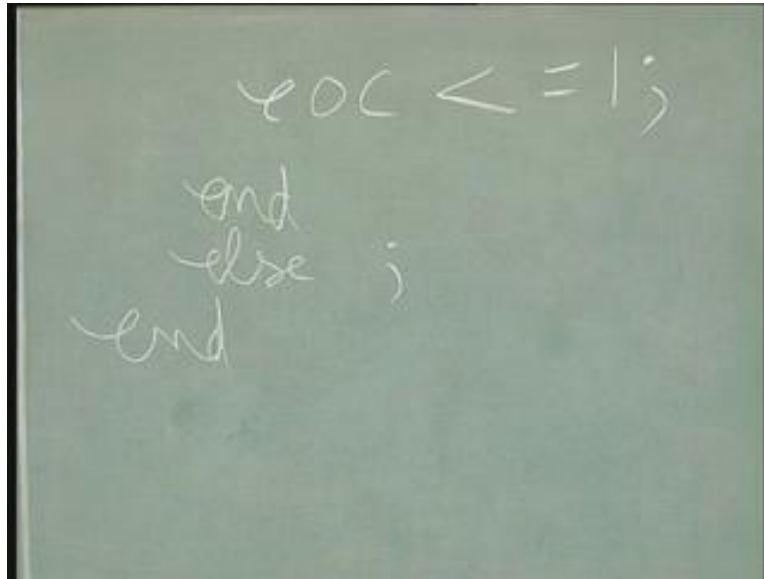 eoc <= 1;
end
else ;
end